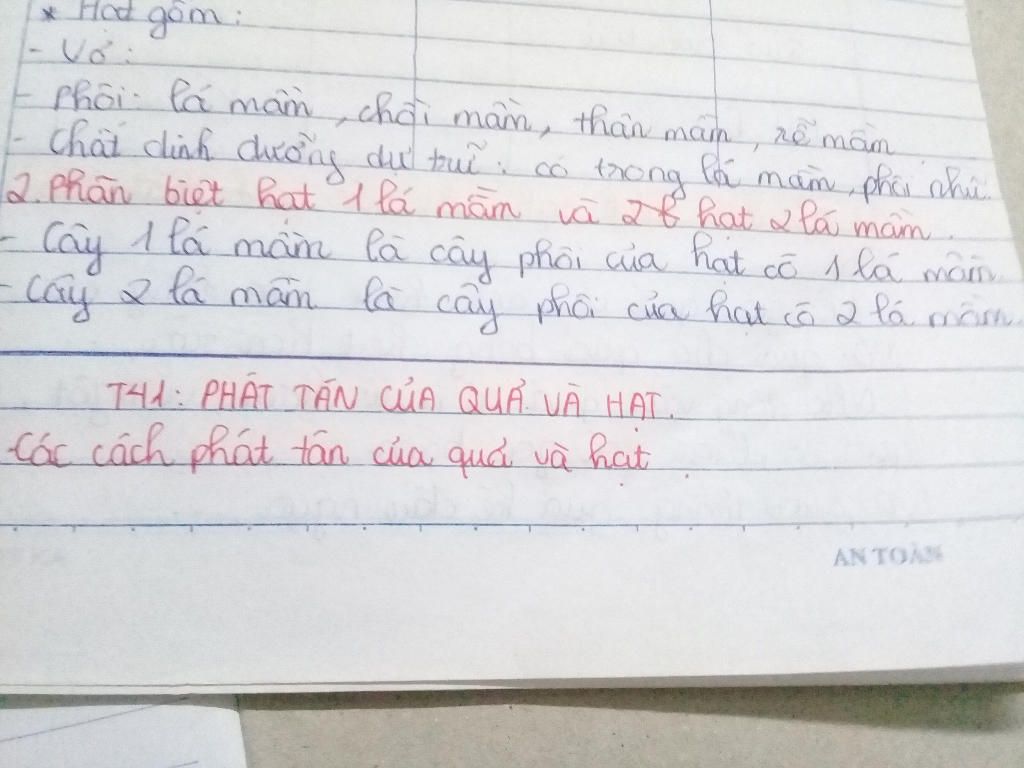 * Hạt gồm:
- Vỏ:
- Phôi: lá mầm, chồi mầm, thân mầm, rễ mầm
- Chất dinh dưỡng dự trữ: có trong lá mầm, phôi nhũ.
2. Phân biệt hạt 1 lá mầm và 2 hạt 2 lá mầm.
- Cây 1 lá mầm là cây phôi của hạt có 1 lá mầm
- Cây 2 lá mầm là cây phôi của hạt có 2 lá mầm.
T41: PHÁT TÁN CỦA QUẢ VÀ HẠT.
Các cách phát tán của quả và hạt.
AN TOÀN